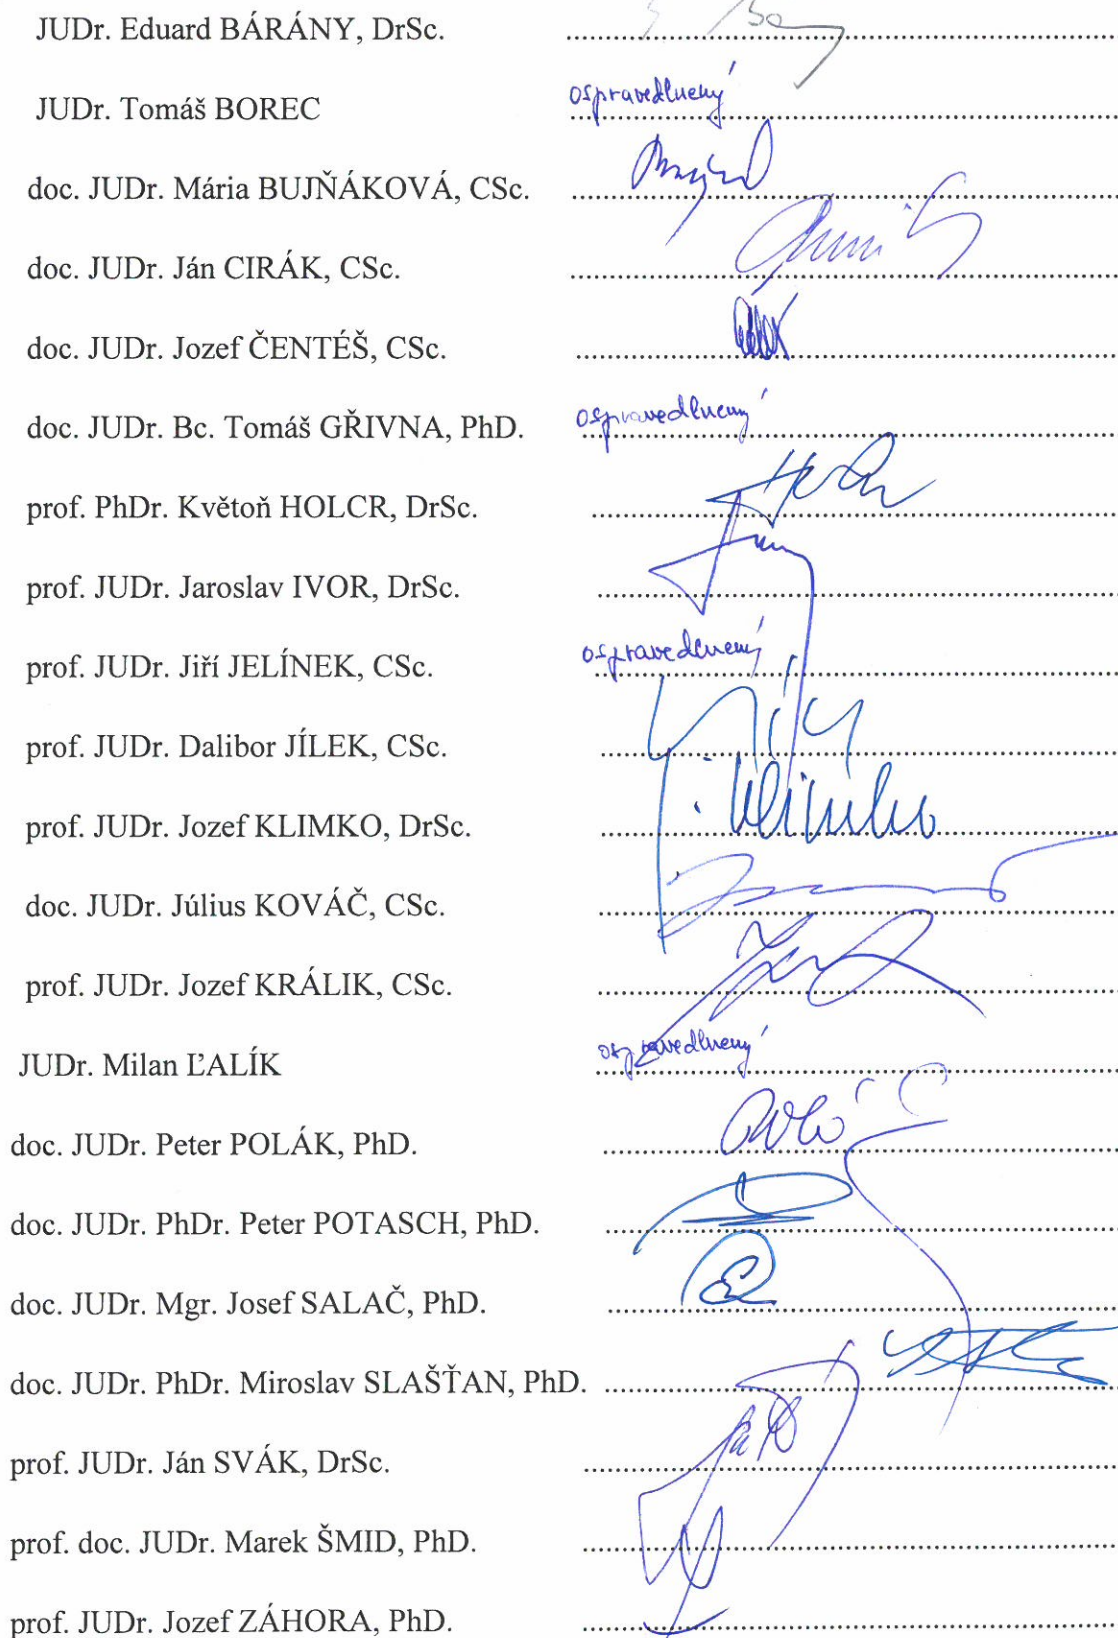 JUDr. Eduard BÁRÁNY, DrSc.
JUDr. Tomáš BOREC ospravedlnený
doc. JUDr. Mária BUJŇÁKOVÁ, CSc.
doc. JUDr. Ján CIRÁK, CSc.
doc. JUDr. Jozef ČENTÉŠ, CSc.
doc. JUDr. Bc. Tomáš GŘIVNA, PhD. ospravedlnený
prof. PhDr. Květoň HOLCR, DrSc.
prof. JUDr. Jaroslav IVOR, DrSc.
prof. JUDr. Jiří JELÍNEK, CSc. ospravedlnený
prof. JUDr. Dalibor JÍLEK, CSc.
prof. JUDr. Jozef KLIMKO, DrSc.
doc. JUDr. Július KOVÁČ, CSc.
prof. JUDr. Jozef KRÁLIK, CSc.
JUDr. Milan ĽALÍK ospravedlnený
doc. JUDr. Peter POLÁK, PhD.
doc. JUDr. PhDr. Peter POTASCH, PhD.
doc. JUDr. Mgr. Josef SALAČ, PhD.
doc. JUDr. PhDr. Miroslav SLAŠŤAN, PhD.
prof. JUDr. Ján SVÁK, DrSc.
prof. doc. JUDr. Marek ŠMID, PhD.
prof. JUDr. Jozef ZÁHORA, PhD.